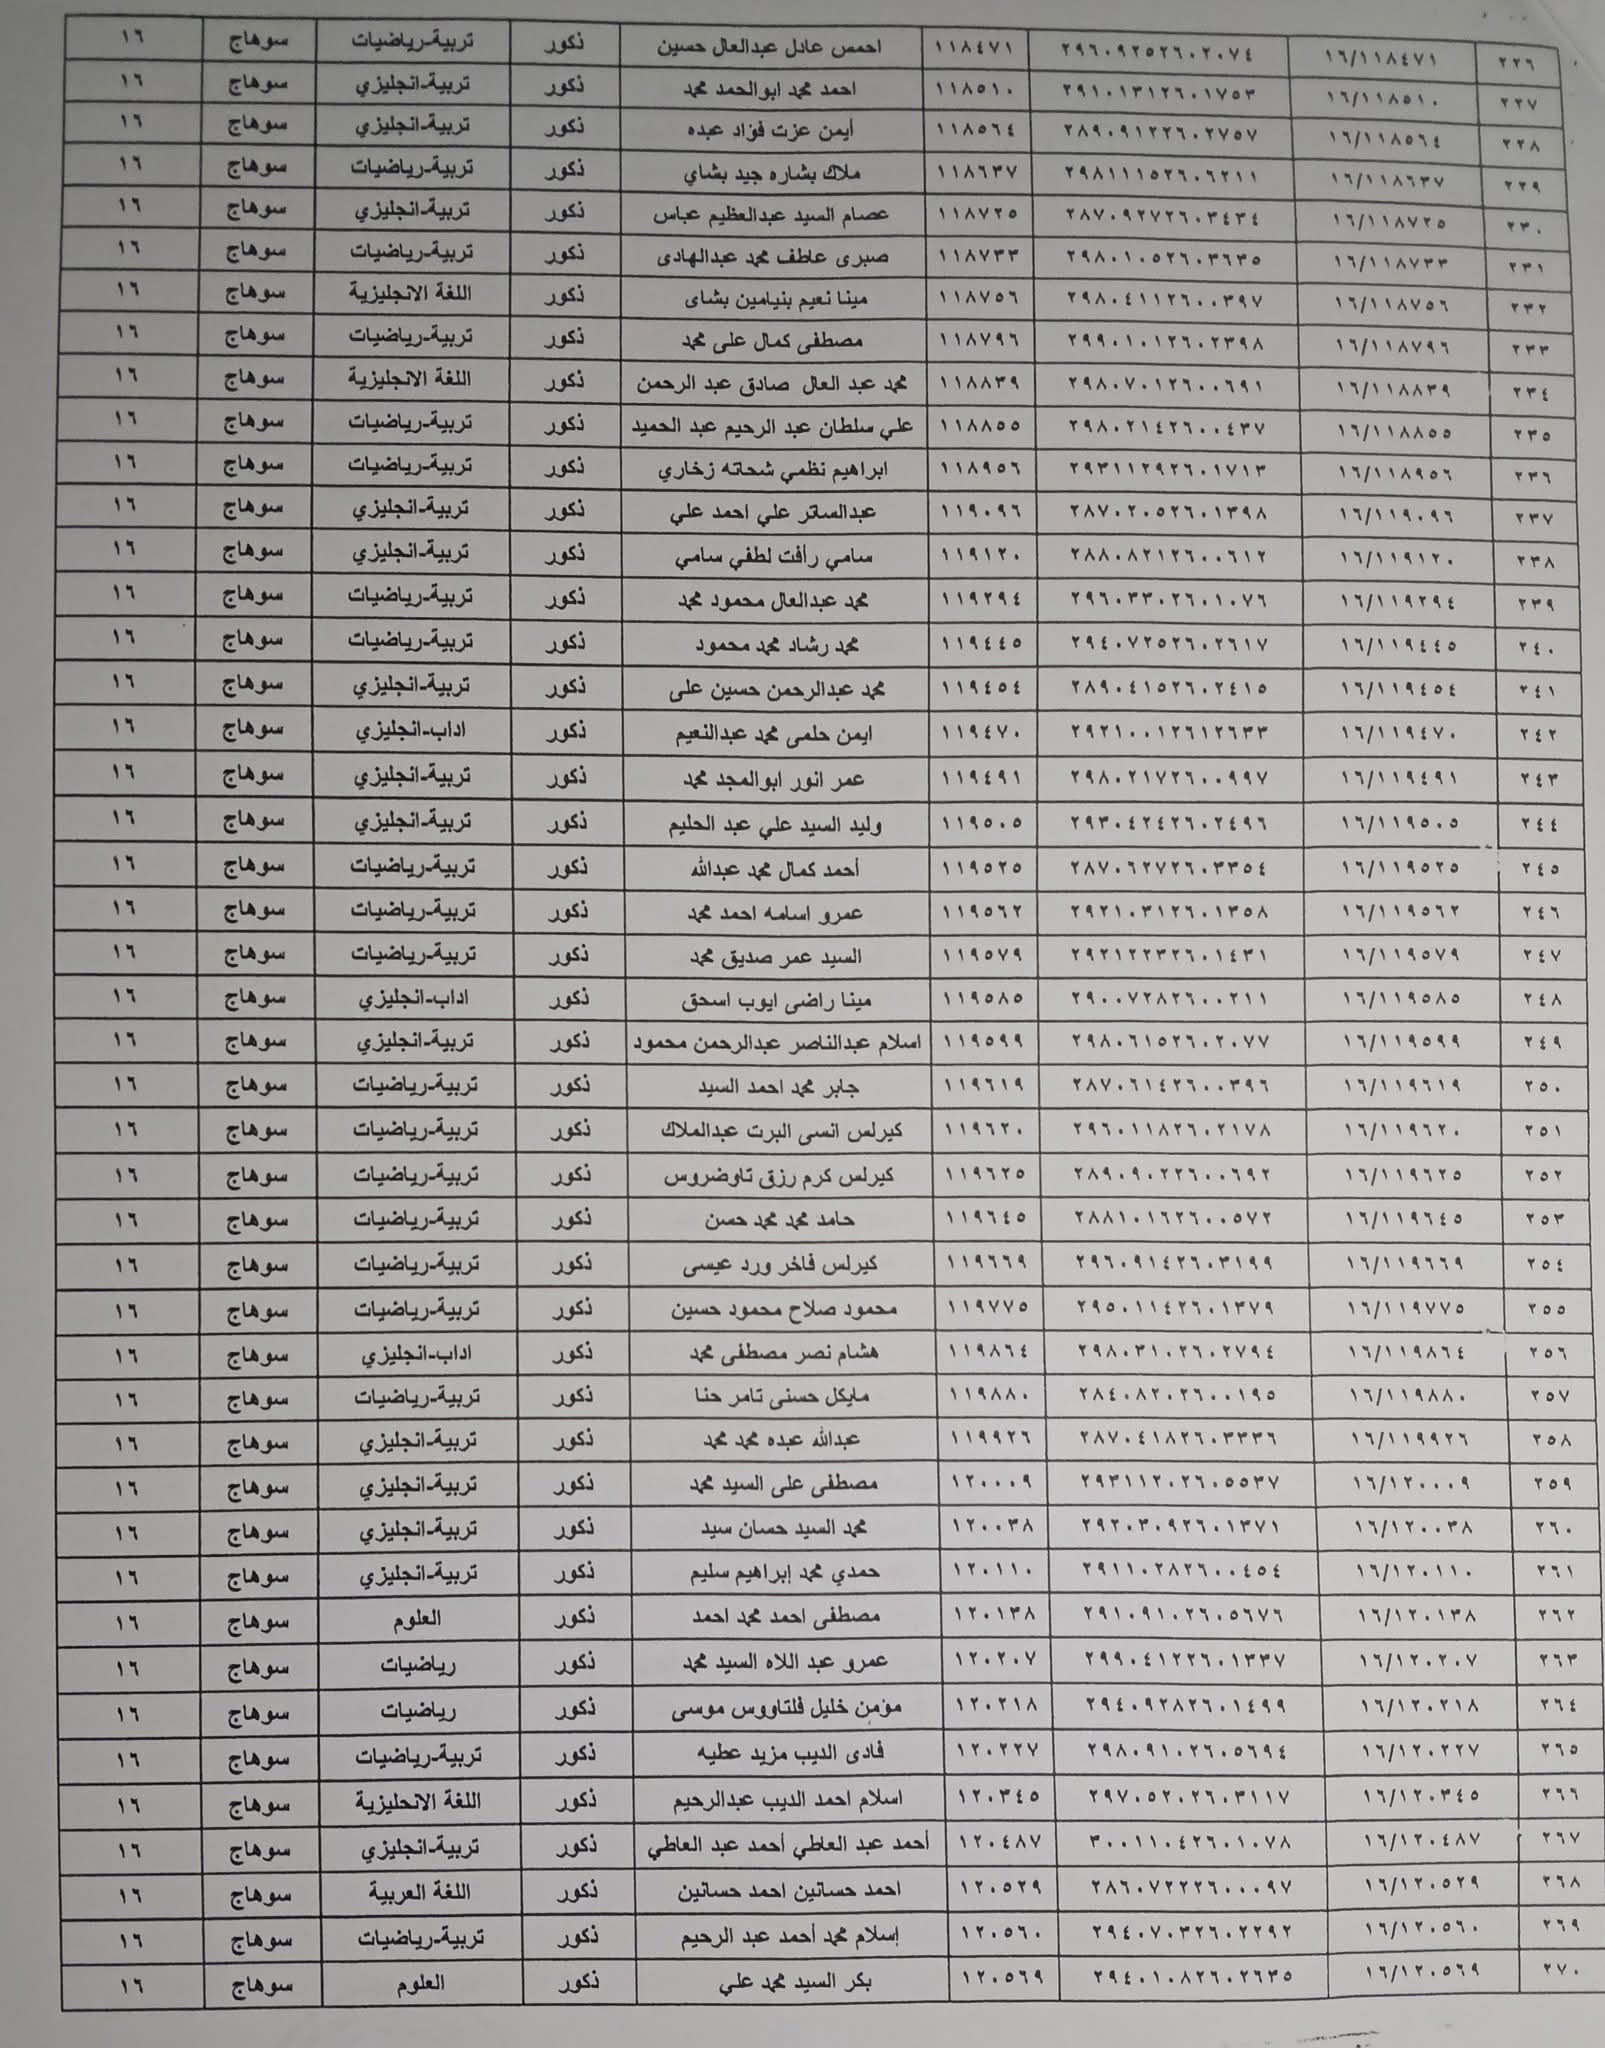 ٢٢٦ ١٦/١١٨٤٧١ ٢٩٦٠٩٢٥٢٦٠٢٠٧٤ ١١٨٤٧١ احمس عادل عبدالعال حسين ذكور تربية-رياضيات سوهاج ١٦
٢٢٧ ١٦/١١٨٥١٠ ٢٩١٠١٣١٢٦٠١٧٥٣ ١١٨٥١٠ احمد محمد ابوالحمد محمد ذكور تربية-انجليزي سوهاج ١٦
٢٢٨ ١٦/١١٨٥٦٤ ٢٨٩٠٩١٢٢٦٠٢٧٥٧ ١١٨٥٦٤ أيمن عزت فؤاد عبده ذكور تربية-انجليزي سوهاج ١٦
٢٢٩ ١٦/١١٨٦٣٧ ٢٩٨١١١٥٢٦٠٦٢١١ ١١٨٦٣٧ ملاك بشاره جيد بشاي ذكور تربية-رياضيات سوهاج ١٦
٢٣٠ ١٦/١١٨٧٢٥ ٢٨٧٠٩٢٧٢٦٠٣٤٣٤ ١١٨٧٢٥ عصام السيد عبدالعظيم عباس ذكور تربية-انجليزي سوهاج ١٦
٢٣١ ١٦/١١٨٧٣٣ ٢٩٨٠١٠٥٢٦٠٣٦٣٥ ١١٨٧٣٣ صبرى عاطف محمد عبدالهادى ذكور تربية-رياضيات سوهاج ١٦
٢٣٢ ١٦/١١٨٧٥٦ ٢٩٨٠٤١١٢٦٠٠٣٩٧ ١١٨٧٥٦ مينا نعيم بنيامين بشاى ذكور اللغة الانجليزية سوهاج ١٦
٢٣٣ ١٦/١١٨٧٩٦ ٢٩٩٠١٠١٢٦٠٢٣٩٨ ١١٨٧٩٦ مصطفى كمال على محمد ذكور تربية-رياضيات سوهاج ١٦
٢٣٤ ١٦/١١٨٨٣٩ ٢٩٨٠٧٠١٢٦٠٠٦٩١ ١١٨٨٣٩ محمد عبد العال صادق عبد الرحمن ذكور اللغة الانجليزية سوهاج ١٦
٢٣٥ ١٦/١١٨٨٥٥ ٢٩٨٠٢١٤٢٦٠٠٤٣٧ ١١٨٨٥٥ علي سلطان عبد الرحيم عبد الحميد ذكور تربية-رياضيات سوهاج ١٦
٢٣٦ ١٦/١١٨٩٥٦ ٢٩٣١١٢٩٢٦٠١٧١٣ ١١٨٩٥٦ ابراهيم نظمي شحاته زخاري ذكور تربية-رياضيات سوهاج ١٦
٢٣٧ ١٦/١١٩٠٩٦ ٢٨٧٠٢٠٥٢٦٠١٣٩٨ ١١٩٠٩٦ عبدالساتر علي احمد علي ذكور تربية-انجليزي سوهاج ١٦
٢٣٨ ١٦/١١٩١٢٠ ٢٨٨٠٨٢١٢٦٠٠٦١٢ ١١٩١٢٠ سامي رأفت لطفي سامي ذكور تربية-انجليزي سوهاج ١٦
٢٣٩ ١٦/١١٩٢٩٤ ٢٩٦٠٣٣٠٢٦٠١٠٧٦ ١١٩٢٩٤ محمد عبدالعال محمود محمد ذكور تربية-رياضيات سوهاج ١٦
٢٤٠ ١٦/١١٩٤٤٥ ٢٩٤٠٧٢٥٢٦٠٢٦١٧ ١١٩٤٤٥ محمد رشاد محمد محمود ذكور تربية-رياضيات سوهاج ١٦
٢٤١ ١٦/١١٩٤٥٤ ٢٨٩٠٤١٥٢٦٠٢٤١٥ ١١٩٤٥٤ محمد عبدالرحمن حسين على ذكور تربية-انجليزي سوهاج ١٦
٢٤٢ ١٦/١١٩٤٧٠ ٢٩٢١٠٠١٢٦١٢٦٣٣ ١١٩٤٧٠ ايمن حلمى محمد عبدالنعيم ذكور اداب-انجليزي سوهاج ١٦
٢٤٣ ١٦/١١٩٤٩١ ٢٩٨٠٢١٧٢٦٠٠٩٩٧ ١١٩٤٩١ عمر انور ابوالمجد محمد ذكور تربية-انجليزي سوهاج ١٦
٢٤٤ ١٦/١١٩٥٠٥ ٢٩٣٠٤٢٤٢٦٠٢٤٩٦ ١١٩٥٠٥ وليد السيد علي عبد الحليم ذكور تربية-انجليزي سوهاج ١٦
٢٤٥ ١٦/١١٩٥٢٥ ٢٨٧٠٦٢٧٢٦٠٣٣٥٤ ١١٩٥٢٥ أحمد كمال محمد عبدالله ذكور تربية-رياضيات سوهاج ١٦
٢٤٦ ١٦/١١٩٥٦٢ ٢٩٢١٠٣١٢٦٠١٣٥٨ ١١٩٥٦٢ عمرو اسامه احمد محمد ذكور تربية-رياضيات سوهاج ١٦
٢٤٧ ١٦/١١٩٥٧٩ ٢٩٢١٢٢٣٢٦٠١٤٣١ ١١٩٥٧٩ السيد عمر صديق محمد ذكور تربية-رياضيات سوهاج ١٦
٢٤٨ ١٦/١١٩٥٨٥ ٢٩٠٠٧٢٨٢٦٠٠٢١١ ١١٩٥٨٥ مينا راضى ايوب اسحق ذكور اداب-انجليزي سوهاج ١٦
٢٤٩ ١٦/١١٩٥٩٩ ٢٩٨٠٦١٥٢٦٠٢٠٧٧ ١١٩٥٩٩ اسلام عبدالناصر عبدالرحمن محمود ذكور تربية-انجليزي سوهاج ١٦
٢٥٠ ١٦/١١٩٦١٩ ٢٨٧٠٦١٤٢٦٠٠٣٩٦ ١١٩٦١٩ جابر محمد احمد السيد ذكور تربية-رياضيات سوهاج ١٦
٢٥١ ١٦/١١٩٦٢٠ ٢٩٦٠١١٨٢٦٠٢١٧٨ ١١٩٦٢٠ كيرلس انسى البرت عبدالملاك ذكور تربية-رياضيات سوهاج ١٦
٢٥٢ ١٦/١١٩٦٢٥ ٢٨٩٠٩٠٢٢٦٠٠٦٩٢ ١١٩٦٢٥ كيرلس كرم رزق تاوضروس ذكور تربية-رياضيات سوهاج ١٦
٢٥٣ ١٦/١١٩٦٤٥ ٢٨٨١٠١٦٢٦٠٠٥٧٢ ١١٩٦٤٥ حامد محمد محمد حسن ذكور تربية-رياضيات سوهاج ١٦
٢٥٤ ١٦/١١٩٦٦٩ ٢٩٦٠٩١٤٢٦٠٣١٩٩ ١١٩٦٦٩ كيرلس فاخر ورد عيسى ذكور تربية-رياضيات سوهاج ١٦
٢٥٥ ١٦/١١٩٧٧٥ ٢٩٥٠١١٤٢٦٠١٣٧٩ ١١٩٧٧٥ محمود صلاح محمود حسين ذكور تربية-رياضيات سوهاج ١٦
٢٥٦ ١٦/١١٩٨٦٤ ٢٩٨٠٣١٠٢٦٠٢٧٩٤ ١١٩٨٦٤ هشام نصر مصطفى محمد ذكور اداب-انجليزي سوهاج ١٦
٢٥٧ ١٦/١١٩٨٨٠ ٢٨٤٠٨٢٠٢٦٠٠١٩٥ ١١٩٨٨٠ مايكل حسنى تامر حنا ذكور تربية-رياضيات سوهاج ١٦
٢٥٨ ١٦/١١٩٩٢٦ ٢٨٧٠٤١٨٢٦٠٣٣٣٦ ١١٩٩٢٦ عبدالله عبده محمد محمد ذكور تربية-انجليزي سوهاج ١٦
٢٥٩ ١٦/١٢٠٠٠٩ ٢٩٣١١٢٠٢٦٠٥٥٣٧ ١٢٠٠٠٩ مصطفى على السيد محمد ذكور تربية-انجليزي سوهاج ١٦
٢٦٠ ١٦/١٢٠٠٣٨ ٢٩٢٠٣٠٩٢٦٠١٣٧١ ١٢٠٠٣٨ محمد السيد حسان سيد ذكور تربية-انجليزي سوهاج ١٦
٢٦١ ١٦/١٢٠١١٠ ٢٩١١٠٢٨٢٦٠٠٤٥٤ ١٢٠١١٠ حمدي محمد إبراهيم سليم ذكور تربية-انجليزي سوهاج ١٦
٢٦٢ ١٦/١٢٠١٣٨ ٢٩١٠٩١٠٢٦٠٥٦٧٦ ١٢٠١٣٨ مصطفى احمد محمد احمد ذكور العلوم سوهاج ١٦
٢٦٣ ١٦/١٢٠٢٠٧ ٢٩٩٠٤١٢٢٦٠١٣٣٧ ١٢٠٢٠٧ عمرو عبد اللاه السيد محمد ذكور رياضيات سوهاج ١٦
٢٦٤ ١٦/١٢٠٢١٨ ٢٩٤٠٩٢٨٢٦٠١٤٩٩ ١٢٠٢١٨ مؤمن خليل فلتاووس موسى ذكور رياضيات سوهاج ١٦
٢٦٥ ١٦/١٢٠٢٢٧ ٢٩٨٠٩١٠٢٦٠٥٦٩٤ ١٢٠٢٢٧ فادى الديب مزيد عطيه ذكور تربية-رياضيات سوهاج ١٦
٢٦٦ ١٦/١٢٠٣٤٥ ٢٩٧٠٥٢٠٢٦٠٣١١٧ ١٢٠٣٤٥ اسلام احمد الديب عبدالرحيم ذكور اللغة الانجليزية سوهاج ١٦
٢٦٧ ١٦/١٢٠٤٨٧ ٣٠٠١١٠٤٢٦٠١٠٧٨ ١٢٠٤٨٧ أحمد عبد العاطي أحمد عبد العاطي ذكور تربية-انجليزي سوهاج ١٦
٢٦٨ ١٦/١٢٠٥٢٩ ٢٨٦٠٧٢٢٢٦٠٠٠٩٧ ١٢٠٥٢٩ احمد حسانين احمد حسانين ذكور اللغة العربية سوهاج ١٦
٢٦٩ ١٦/١٢٠٥٦٠ ٢٩٤٠٧٠٣٢٦٠٢٢٩٢ ١٢٠٥٦٠ إسلام محمد أحمد عبد الرحيم ذكور تربية-رياضيات سوهاج ١٦
٢٧٠ ١٦/١٢٠٥٦٩ ٢٩٤٠١٠٨٢٦٠٢٦٣٥ ١٢٠٥٦٩ بكر السيد محمد علي ذكور العلوم سوهاج ١٦